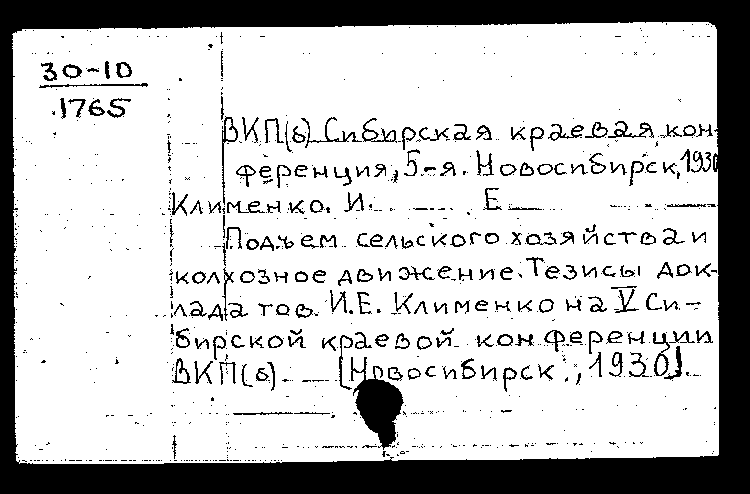 30-10
1765
ВКП(б) Сибирская краевая кон-
ференция, 5-я. Новосибирск, 1930
Клименко. И. Е
Подъем сельского хозяйства и
колхозное движение. Тезисы док-
лада тов. И.Е. Клименко на V Си-
бирской краевой конференции
ВКП(б) [Новосибирск., 1930].